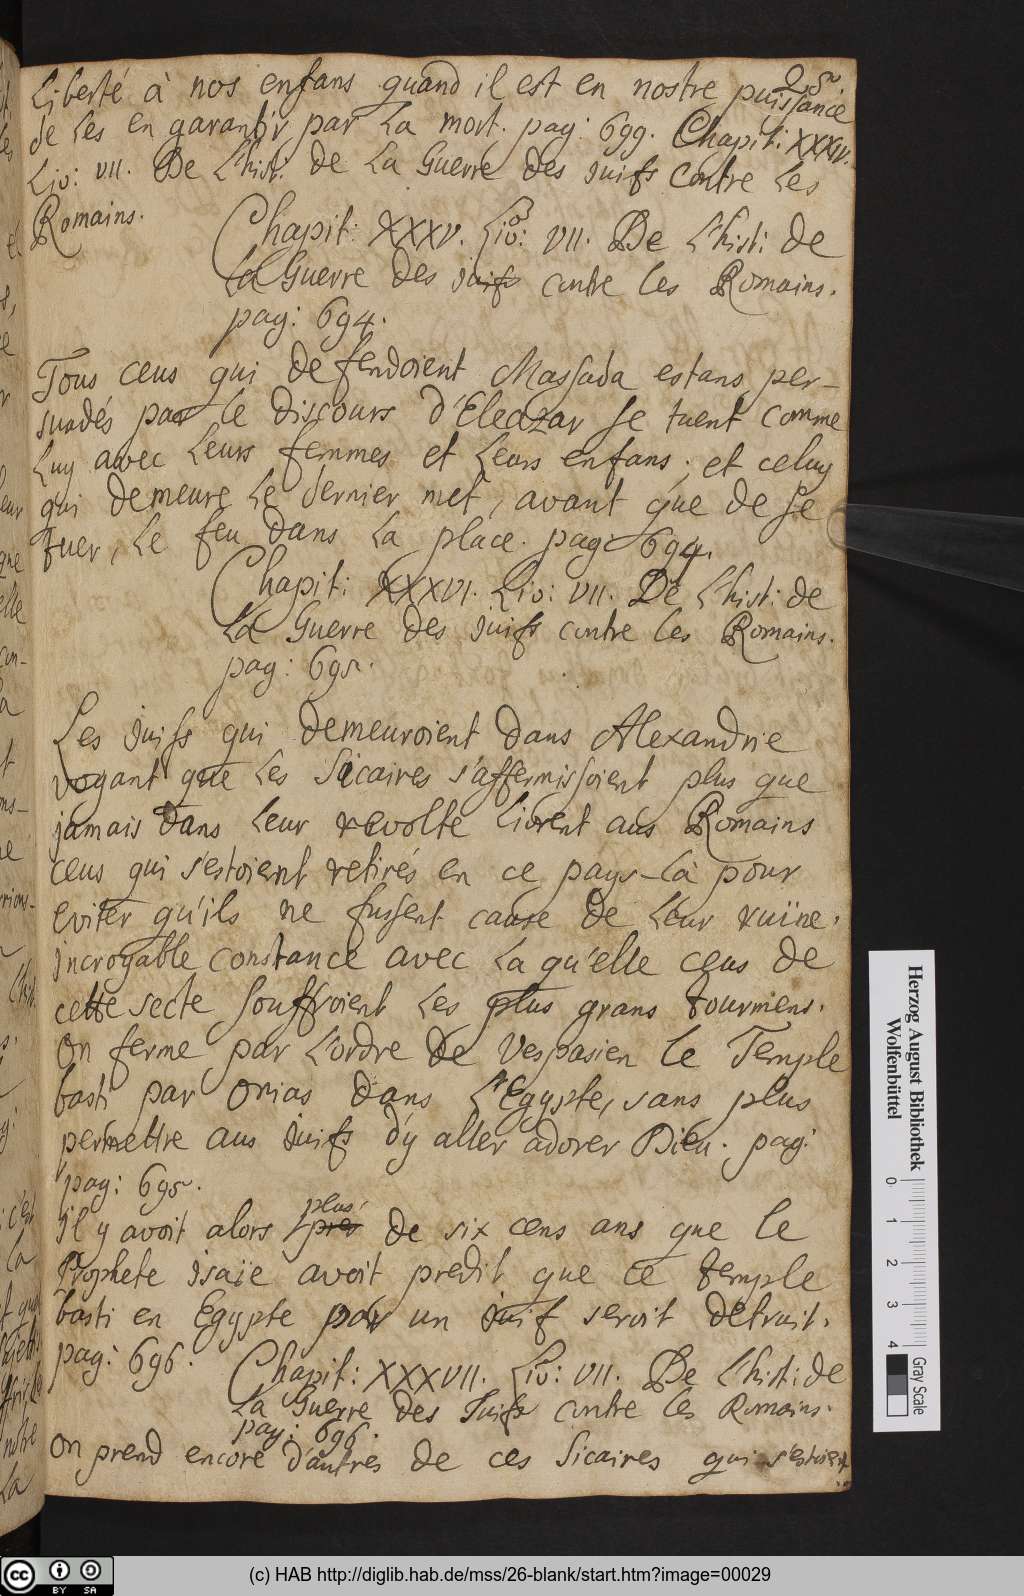 25
Liberté à nos enfans quand il est en nostre puissance
de les en garantir par La mort. pag: 699. Chapit: XXXIV.
Liv: VII. De L'hist: de La Guerre des juifs contre Les
Romains.
Chapit: XXXV. Liv: VII. De L'hist: de
La Guerre des juifs contre les Romains.
pag: 694.
Tous ceus qui defendoient Massada estans per-
suadés par le Discours d'Eleazar se tuent comme
Luy avec Leurs femmes et Leurs enfans; et celuy
qui demeure Le dernier met, avant que de se
tuer, Le feu dans La place. pag: 694.
Chapit: XXXVI. Liv: VII. De L'hist: de
La Guerre des juifs contre les Romains.
pag: 695.
Les juifs qui demeuroient dans Alexandrie
voyant que Les Sicaires s'affermissoient plus que
jamais dans Leur revolte Livrent aus Romains
ceus qui s'estoient retirés en ce pays-Là pour
eviter qu'ils ne fussent cause de Leur ruïne.
incroyable constance avec La qu'elle ceus de
cette secte souffroient Les plus grans tourmens.
On ferme par L'ordre de Vespasien Le Temple
basti par Onias dans L'Egypte, sans plus
permettre aus juifs d'y aller adorer Dieu. pag:
pag: 695.
il y avoit alors plus pres de six cens ans que le
Prophete isaïe avoit predit que ce temple
basti en Egypte par un juif seroit détruit.
pag: 696.
Chapit: XXXVII. Liv: VII. De L'hist: de
La Guerre des Juifs contre les Romains.
pag: 696.
On prend encore d'autres de ces Sicaires qui s'estoient
Herzog August Bibliothek
Wolfenbüttel
0 1 2 3 4
Gray Scale
cc BY SA
(c) HAB http://diglib.hab.de/mss/26-blank/start.htm?image=00029